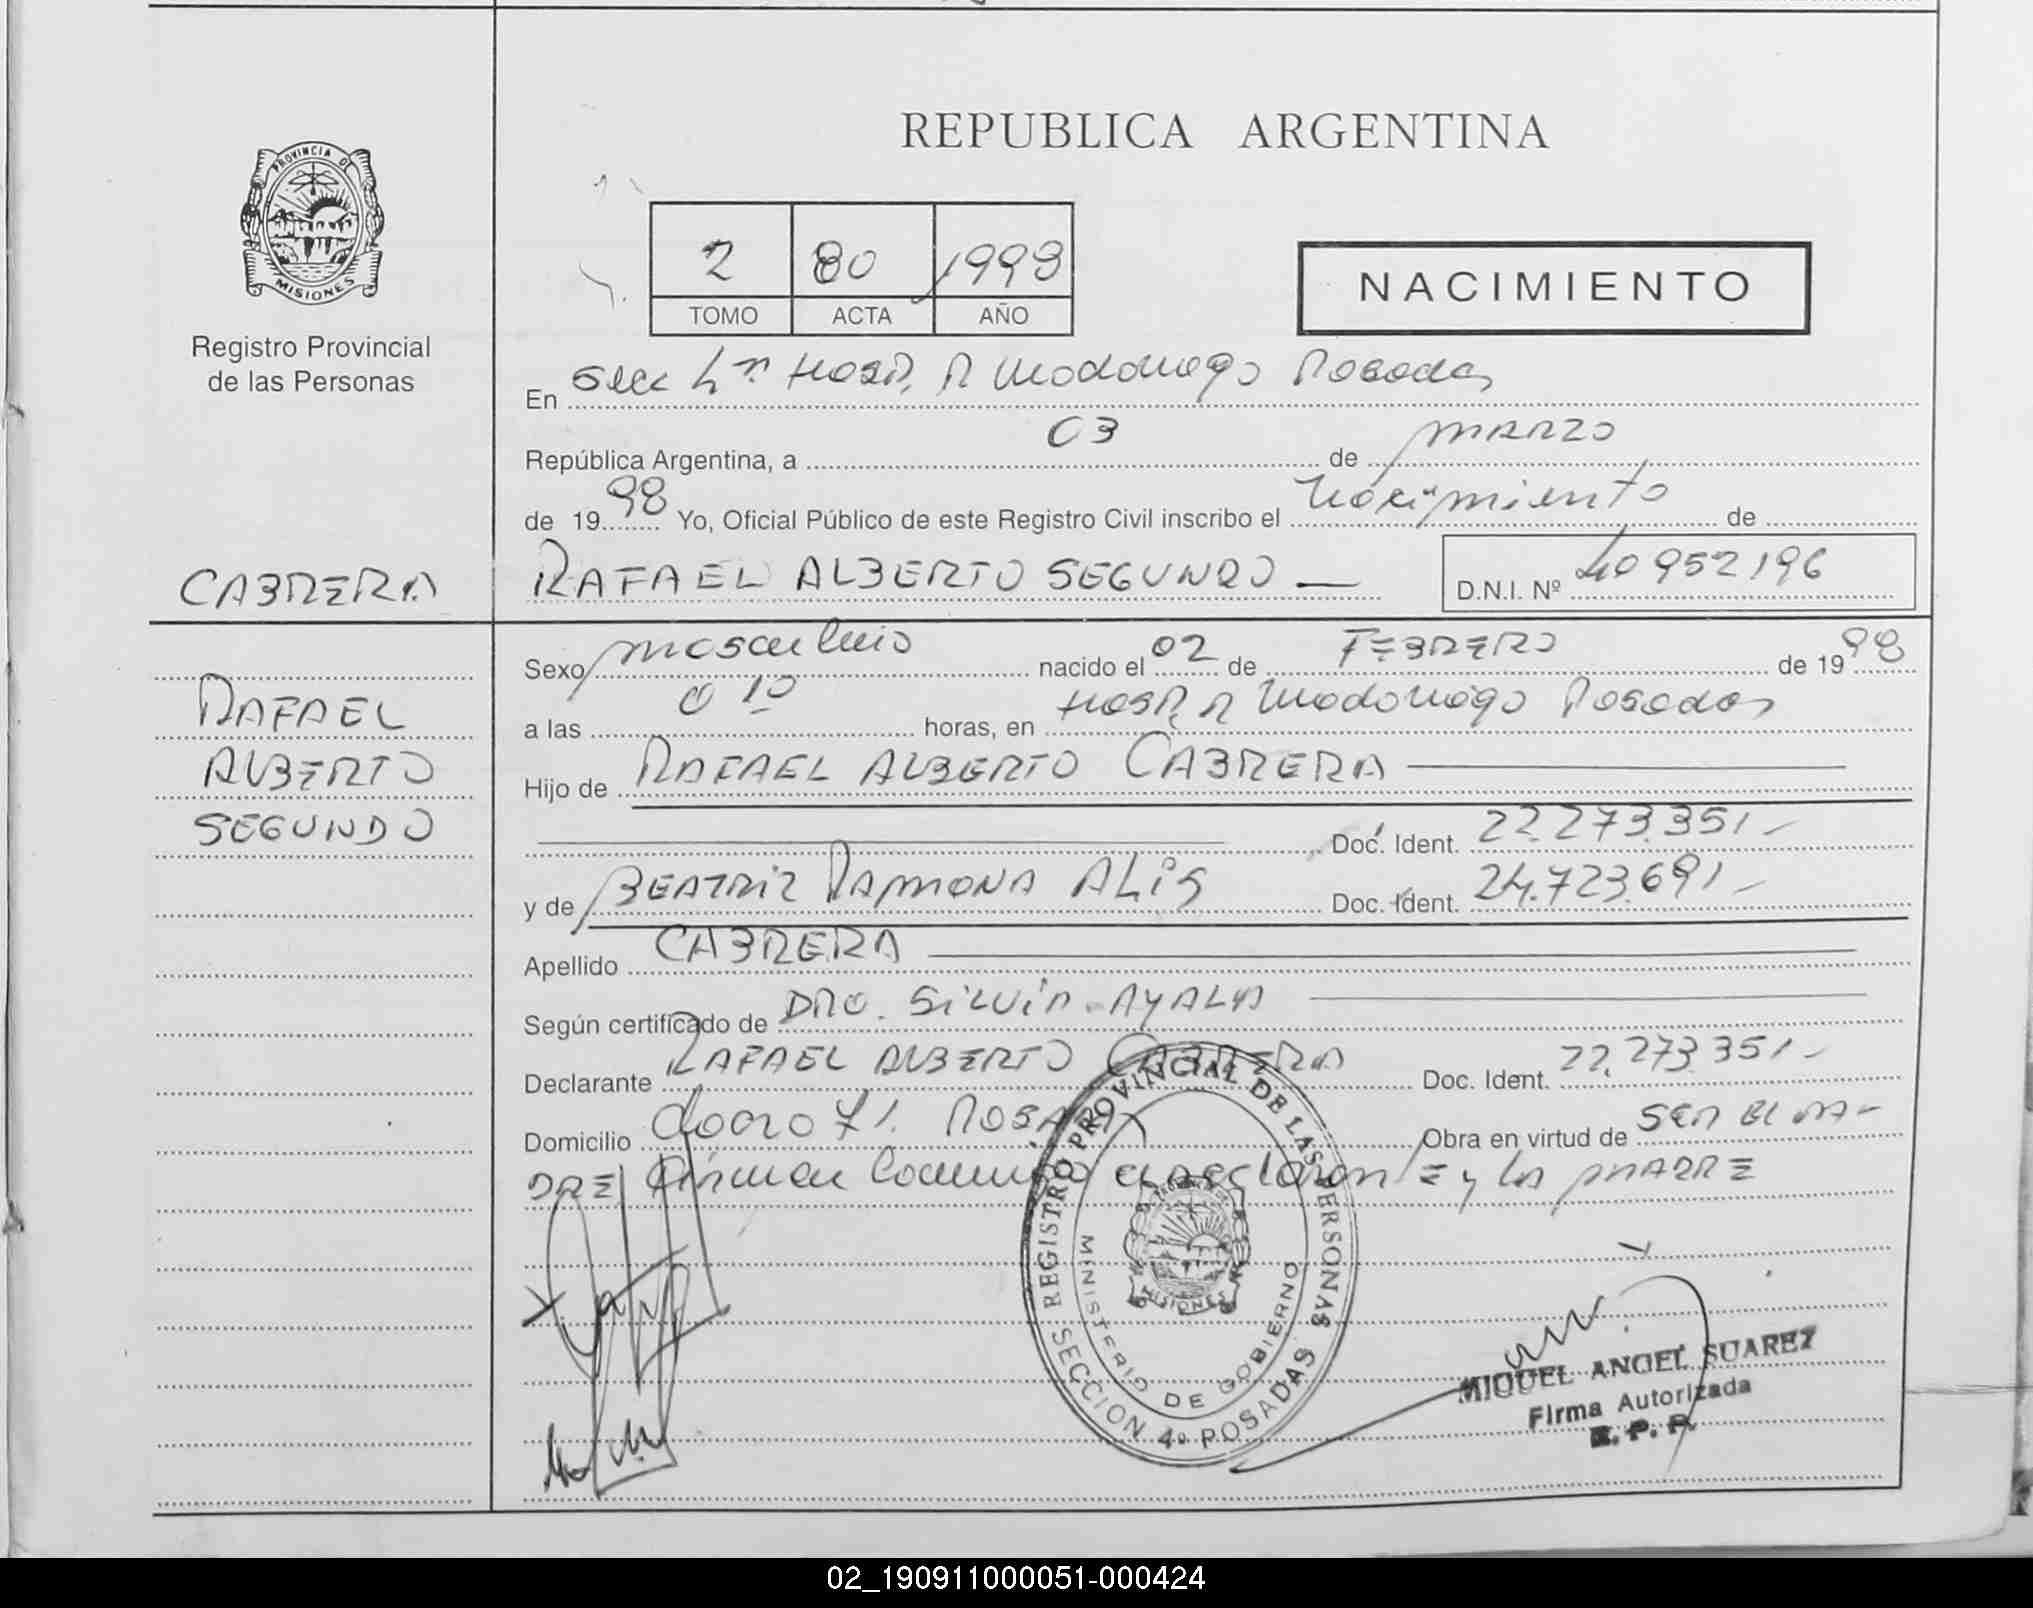 REPUBLICA ARGENTINA
PROVINCIA DE
MISIONES
Registro Provincial
de las Personas
2 80 1998
TOMO ACTA AÑO
NACIMIENTO
En Secc 4ª Hosp. R Madariaga Posadas
República Argentina, a 03 de marzo
de 1998 Yo, Oficial Público de este Registro Civil inscribo el Nacimiento de
CABRERA
RAFAEL ALBERTO SEGUNDO —
D.N.I. Nº 40952196
RAFAEL
ALBERTO
SEGUNDO
Sexo masculino nacido el 02 de FEBRERO de 1998
a las 0 10 horas, en Hosp. R Madariaga Posadas
Hijo de RAFAEL ALBERTO CABRERA
Doc. Ident. 22.273.351.-
y de BEATRIZ RAMONA ALIS Doc. Ident. 24.723.691.-
Apellido CABRERA
Según certificado de DRA. SILVIA AYALA
Declarante RAFAEL ALBERTO CABRERA Doc. Ident. 22.273.351.-
Domicilio 71. POSADAS Obra en virtud de SER EL PA-
DRE Firman el declarante y la MADRE
REGISTRO PROVINCIAL DE LAS PERSONAS
MINISTERIO DE GOBIERNO
MISIONES
SECCION 4º POSADAS
MIGUEL ANGEL SUAREZ
Firma Autorizada
R. P. P.
02_190911000051-000424